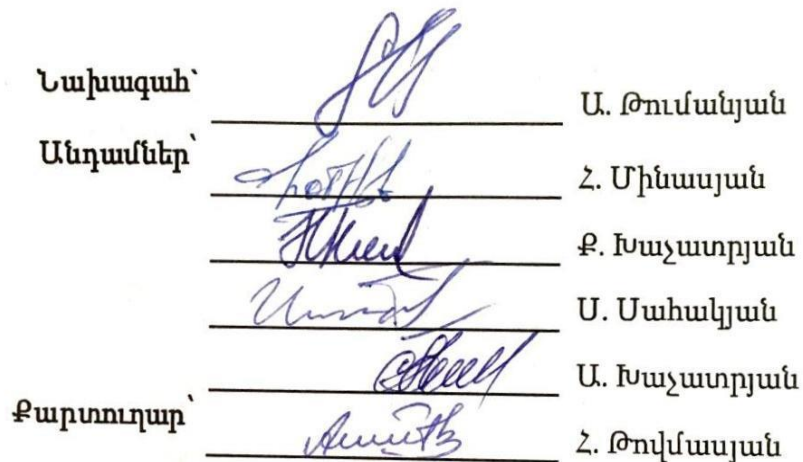 Նախագահ՝
Ա. Թումանյան
Անդամներ՝
Հ. Մինասյան
Ք. Խաչատրյան
Ս. Սահակյան
Ա. Խաչատրյան
Քարտուղար՝
Հ. Թովմասյան